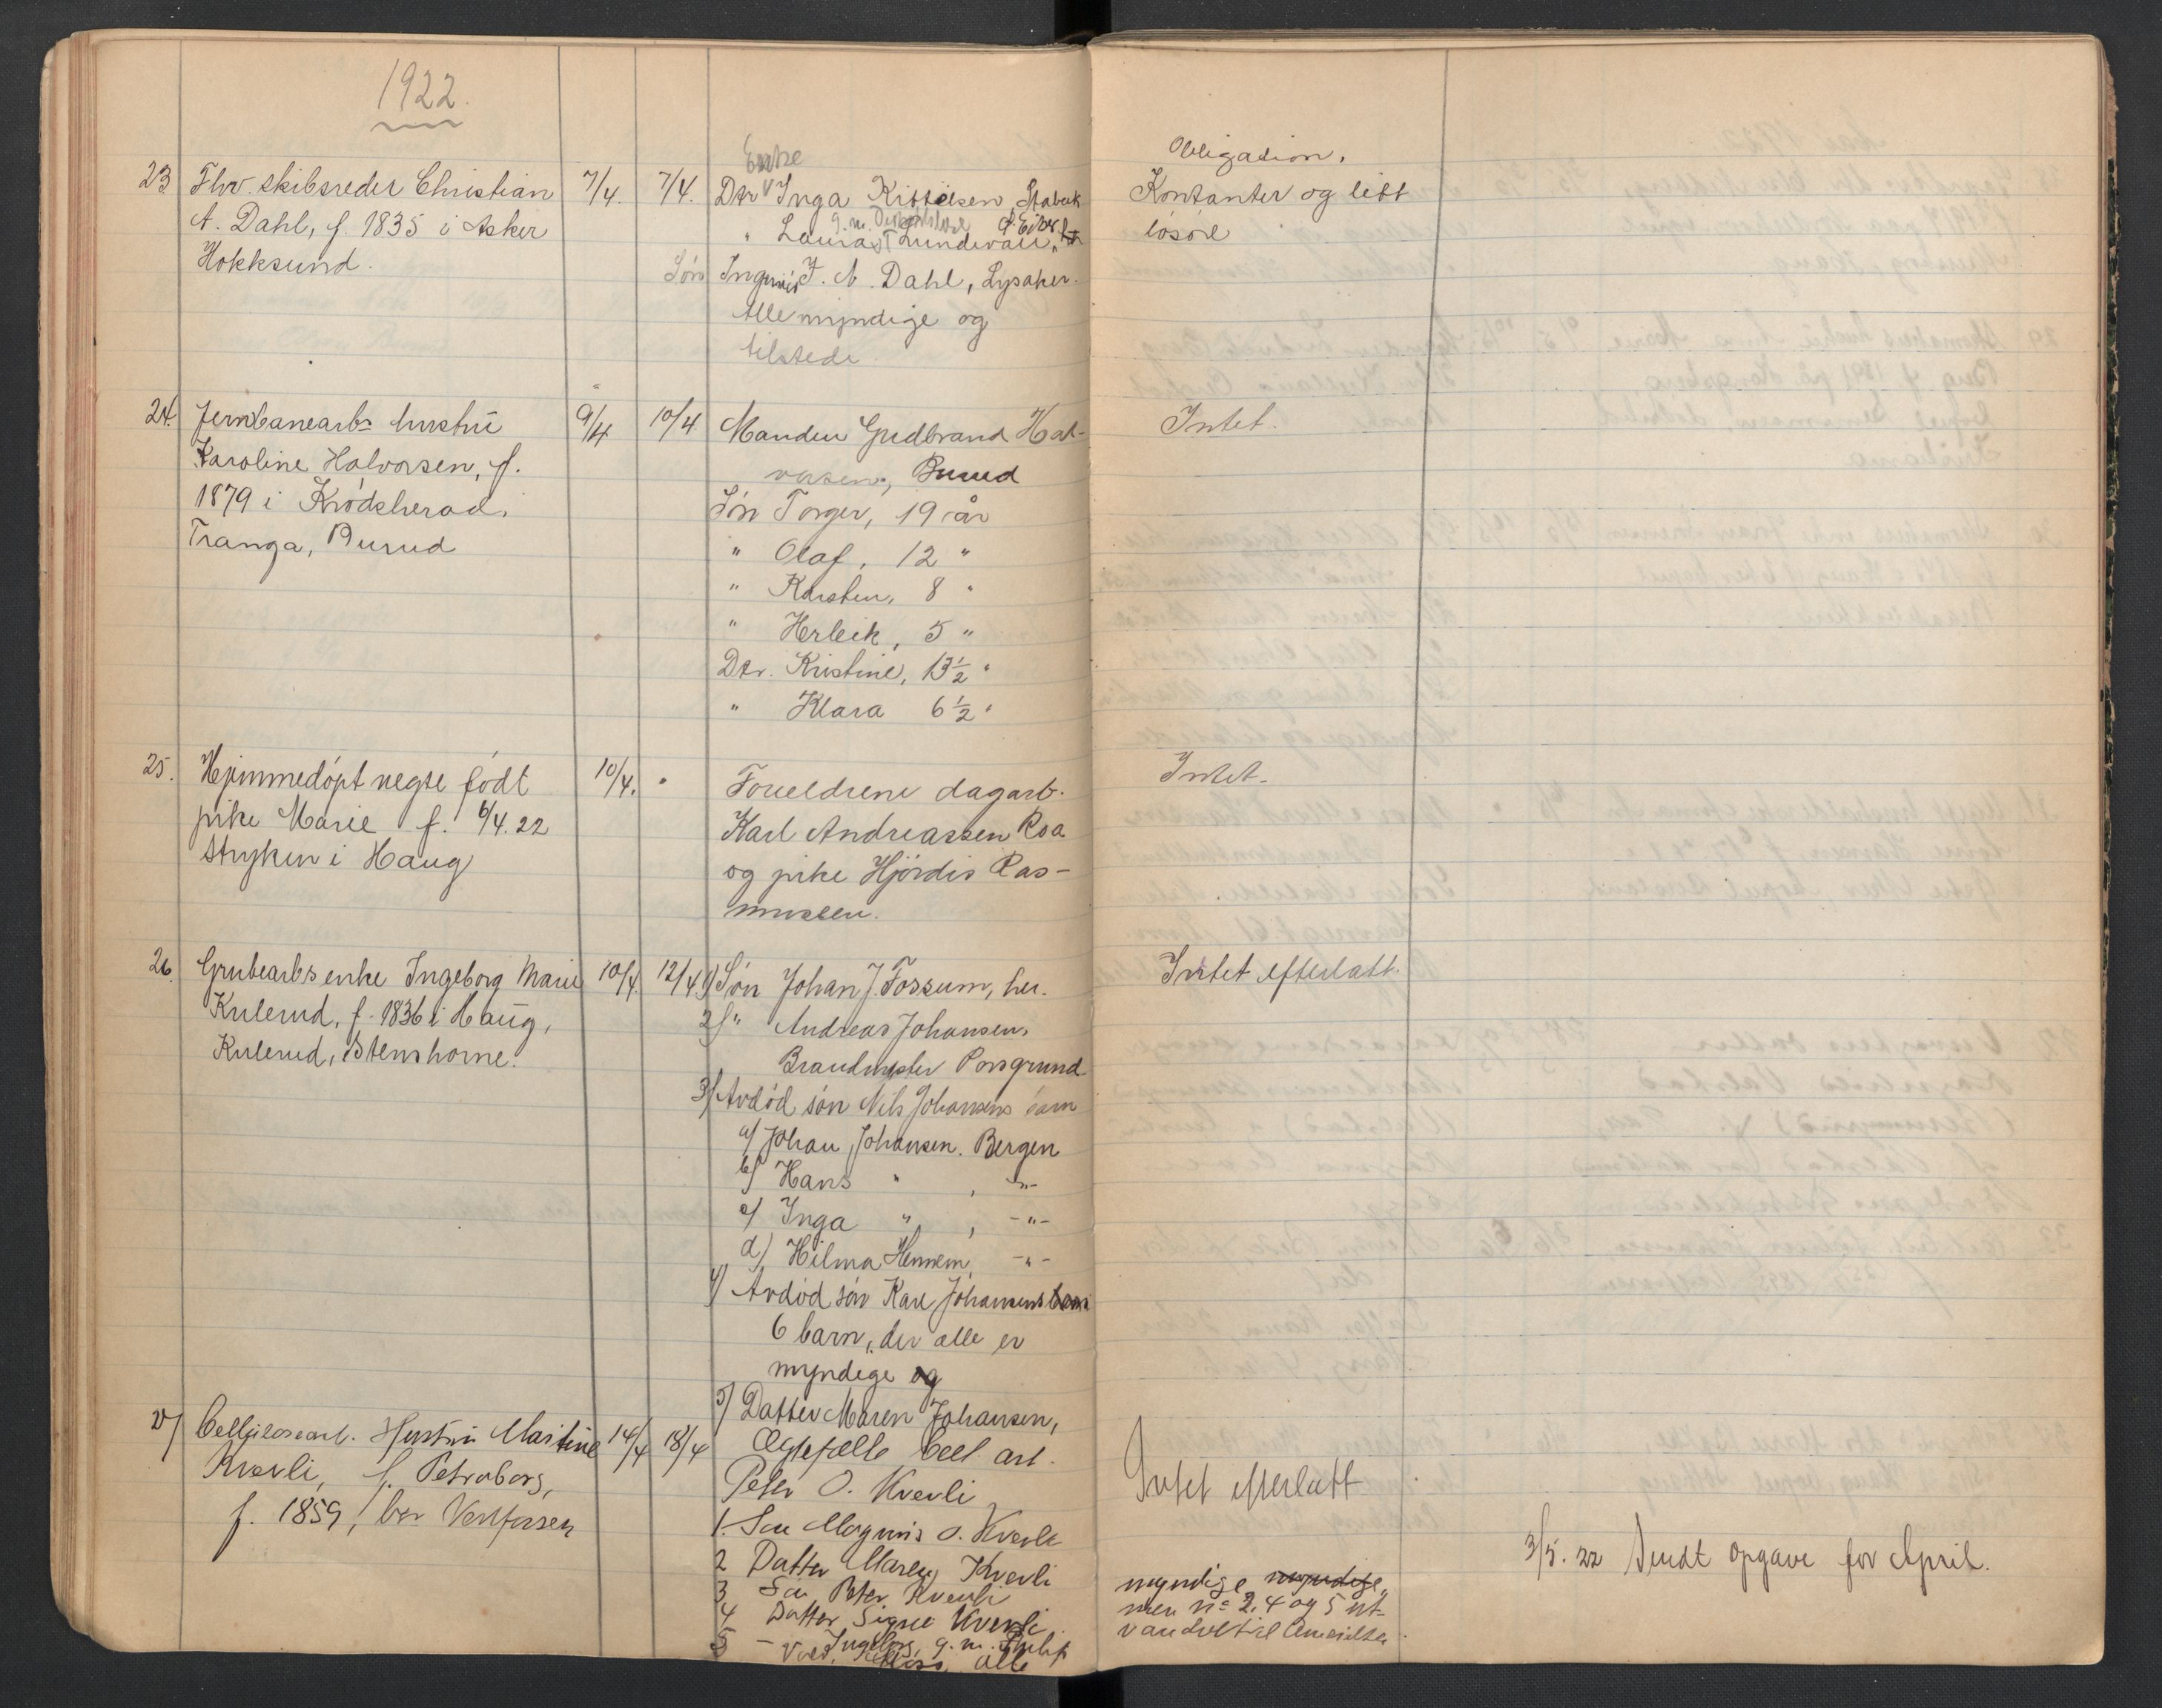 1922.
23 Fhv. skibsreder Christian 7/4. 7/4.
A. Dahl, f. 1835 i Asker
Hokksund.
Enke
Dtr Inga Kittilsen, Stabæk
" Laura Lundevall,
Søn Ingeniør J. N. Dahl, Lysaker.
Alle myndige og
tilstede.
Obligation,
Kontanter og litt
løsøre
24. Jernbanearbs hustru 9/4 10/4
Karoline Halvorsen, f.
1879 i Krødsherad.
Tranga, Burud
Manden Gudbrand Hal-
vorsen, Burud
Søn Torger, 19 år
" Olaf, 12 "
" Karsten, 8 "
" Herleik, 5 "
Dtr. Kristine, 13½ "
" Klara 6½ "
Intet.
25. Hjemmedøpt uegte født 10/4. "
pike Marie f. 6/4. 22
Stryken i Haug
Foreldrene dagarb.
Karl Andreassen Roa
og pike Hjørdis Ras-
mussen.
Intet.
26. Grubearbs enke Ingeborg Marie 10/4. 12/4.
Kulerud, f. 1836 i Haug,
Kulerud, Stenshorne.
1) Søn Johan J. Fossum, her.
2) " Andreas Johansen,
Brandmester Porsgrund
3) Avdød søn Nils Johansens barn
a) Johan Johansen. Bergen
b) Hans " , -"-
c) Inga " , -"-
d) Hilma -"-
4) Avdød søn Karl Johansens barn
6 barn, der alle er
myndige og
5) Datter Maren Johansen,
Intet efterlatt.
27) Cellulosearb. Hustru Martine 14/4 18/4
Kverli, f. Petraborg,
f. 1859, bor Vestfossen
Ægtefælle Cell. arb.
Peter O. Kverli
1. Søn Magnus O. Kverli
2 Datter Maren Kverli
3 Søn Peter Kverli
4 Datter Signe Kverli.
5 — Ingeborg, g. m. Philip
alle
Intet efterlatt
myndige myndige,
men no 2, 4 og 5 ut-
vandret til Amerika.
3/5. 22 Sendt opgave for April.